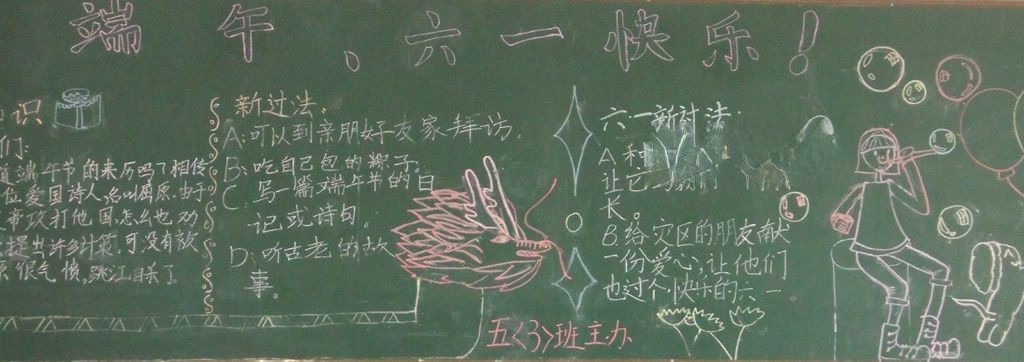 端午、六一快乐！
识
们：
端午节的来历吗？相传
位爱国诗人名叫屈原。由于
攻打他国，怎么也劝
提出许多计策，可没有被
很气愤，跳江自杀了
新过法：
A:可以到亲朋好友家拜访。
B:吃自己包的粽子。
C:写一篇端午节的日
记或诗句。
D:听古老的故
事。
六一新过法
A.和
让它
长。
B.给灾区的朋友献
一份爱心，让他们
也过个快乐的六一
五<3>班主办